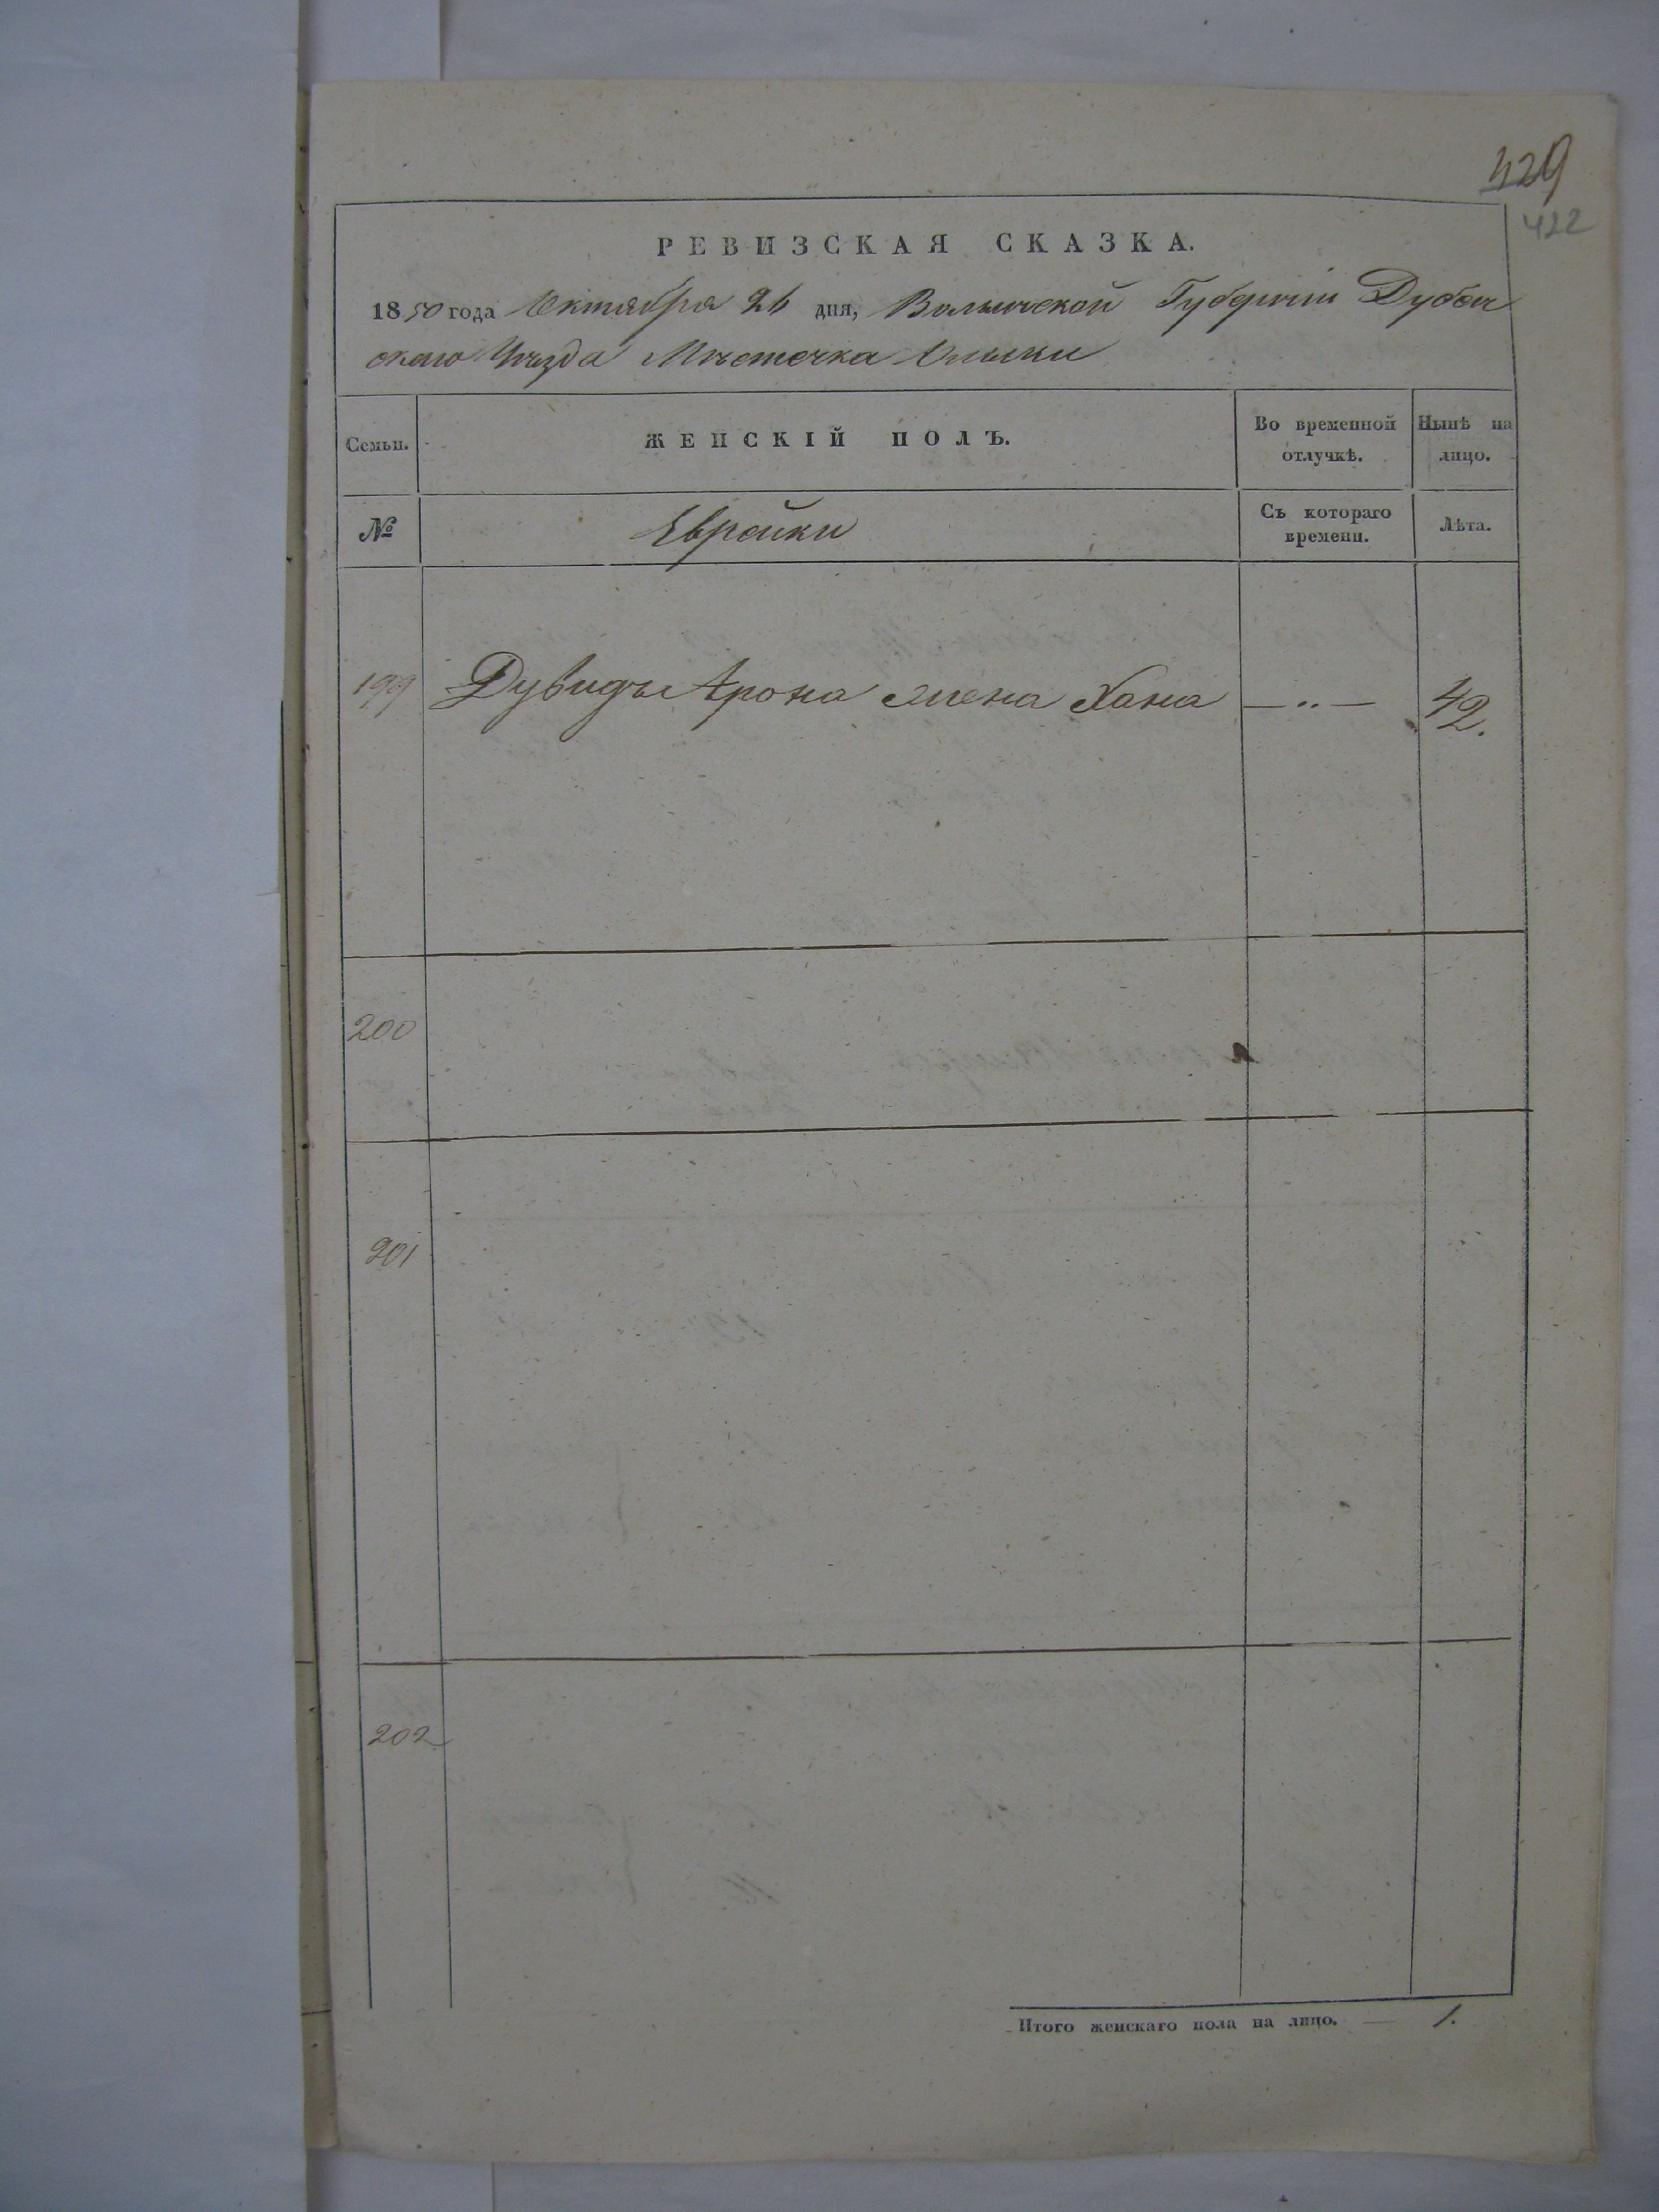 429
422
РЕВИЗСКАЯ СКАЗКА.
1850 года Октября 26 дня, Волынской Губерніи Дубен
скаго Уѣзда Мѣстечка Олыки
Семьи.
ЖЕНСКІЙ ПОЛЪ.
Во временной
отлучкѣ.
Нынѣ на
лицо.
№
Еврейки
Съ котораго
времени.
Лѣта.
199 Дувидъ Арона жена Хана — „ — 42.
200
201
202
Итого женскаго пола на лицо. — 1.